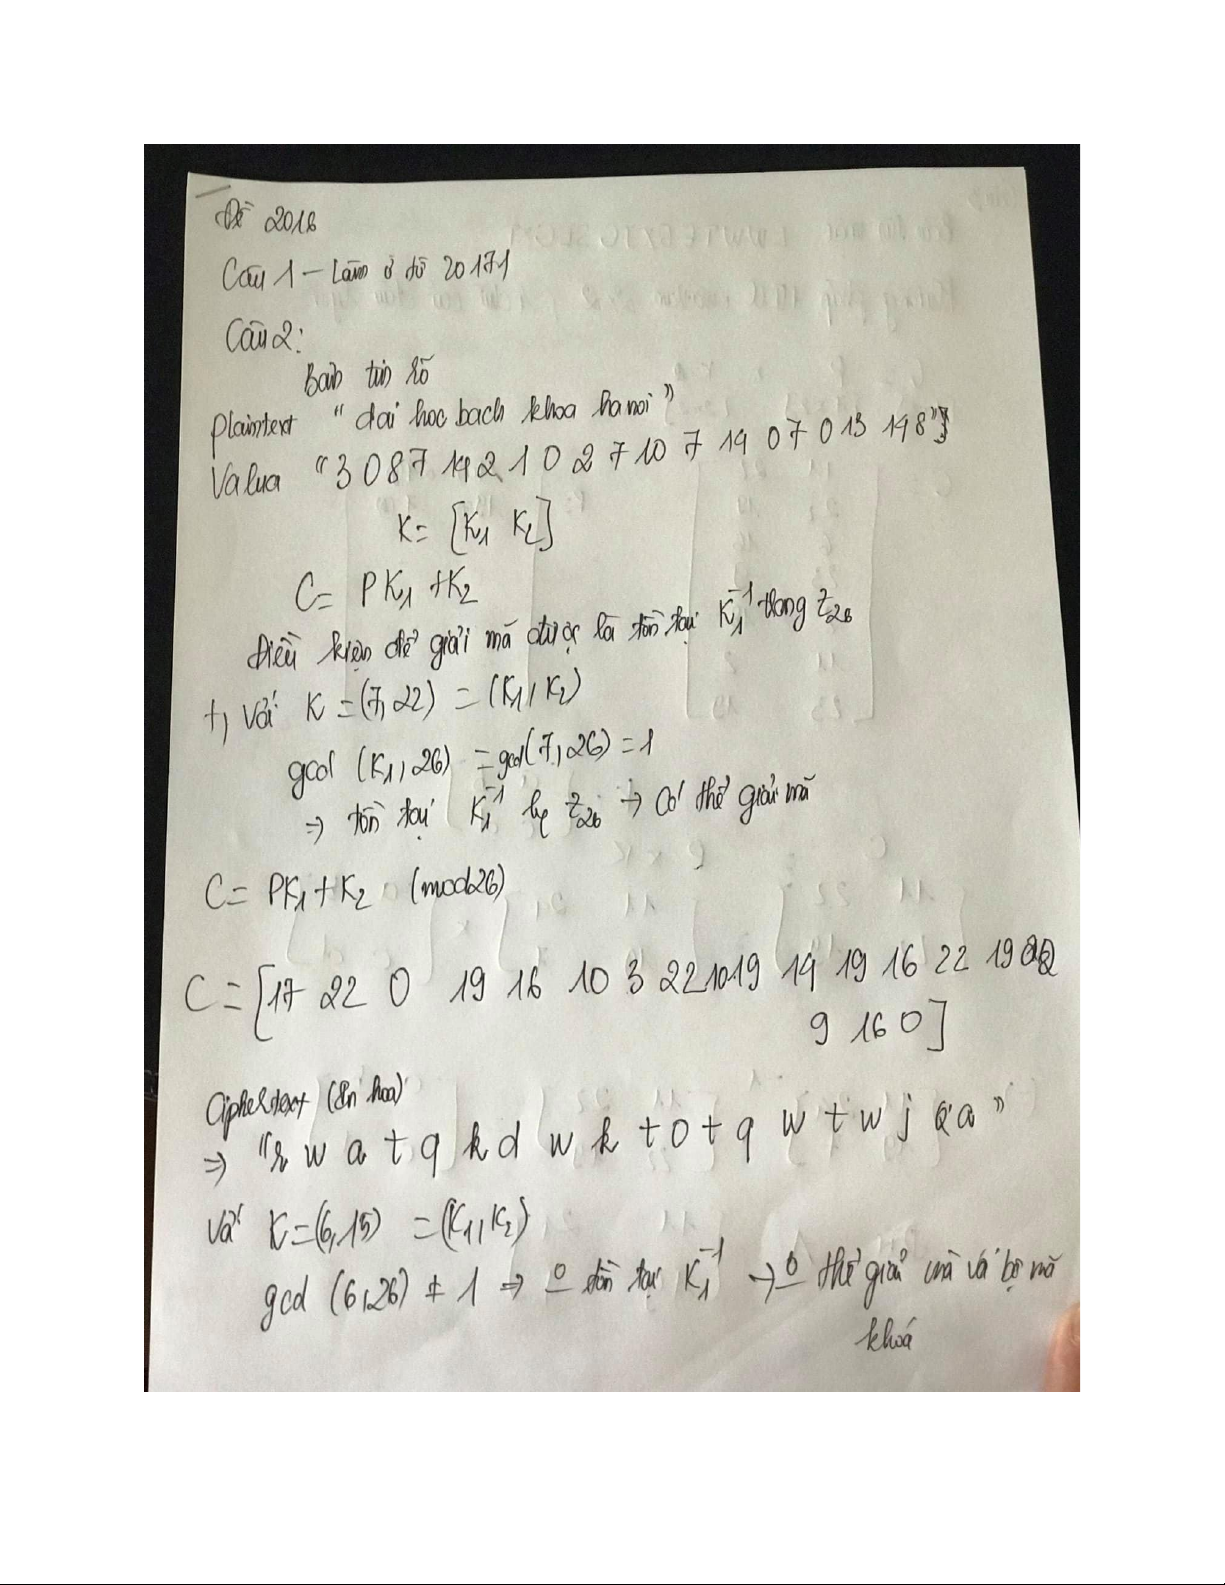 Đề 2018
Câu 1 – Làm ở đề 20171
Câu 2:
Bản tin rõ
plaintext "dai hoc bach khoa hanoi"
Value "3 0 8 7 14 2 1 0 2 7 10 7 14 0 7 0 13 14 8"
K = [K1 K2]
C = PK1 + K2
Điều kiện để giải mã được là tồn tại K1^-1 trong Z26
+, Với K = (7, 22) = (K1, K2)
gcd (K1, 26) = gcd(7, 26) = 1
⇒ tồn tại K1^-1 Z26 → Có thể giải mã
C = PK1 + K2 (mod 26)
C = [17 22 0 19 16 10 3 22 10 19 14 19 16 22 19 22
9 16 0]
Ciphertext (In hoa)
⇒ "r w a t q k d w k t o t q w t w j q a"
Với K = (6, 15) = (K1, K2)
gcd (6, 26) ≠ 1 ⇒ o tồn tại K1^-1 → o thể giải mã với bộ mã
khoá